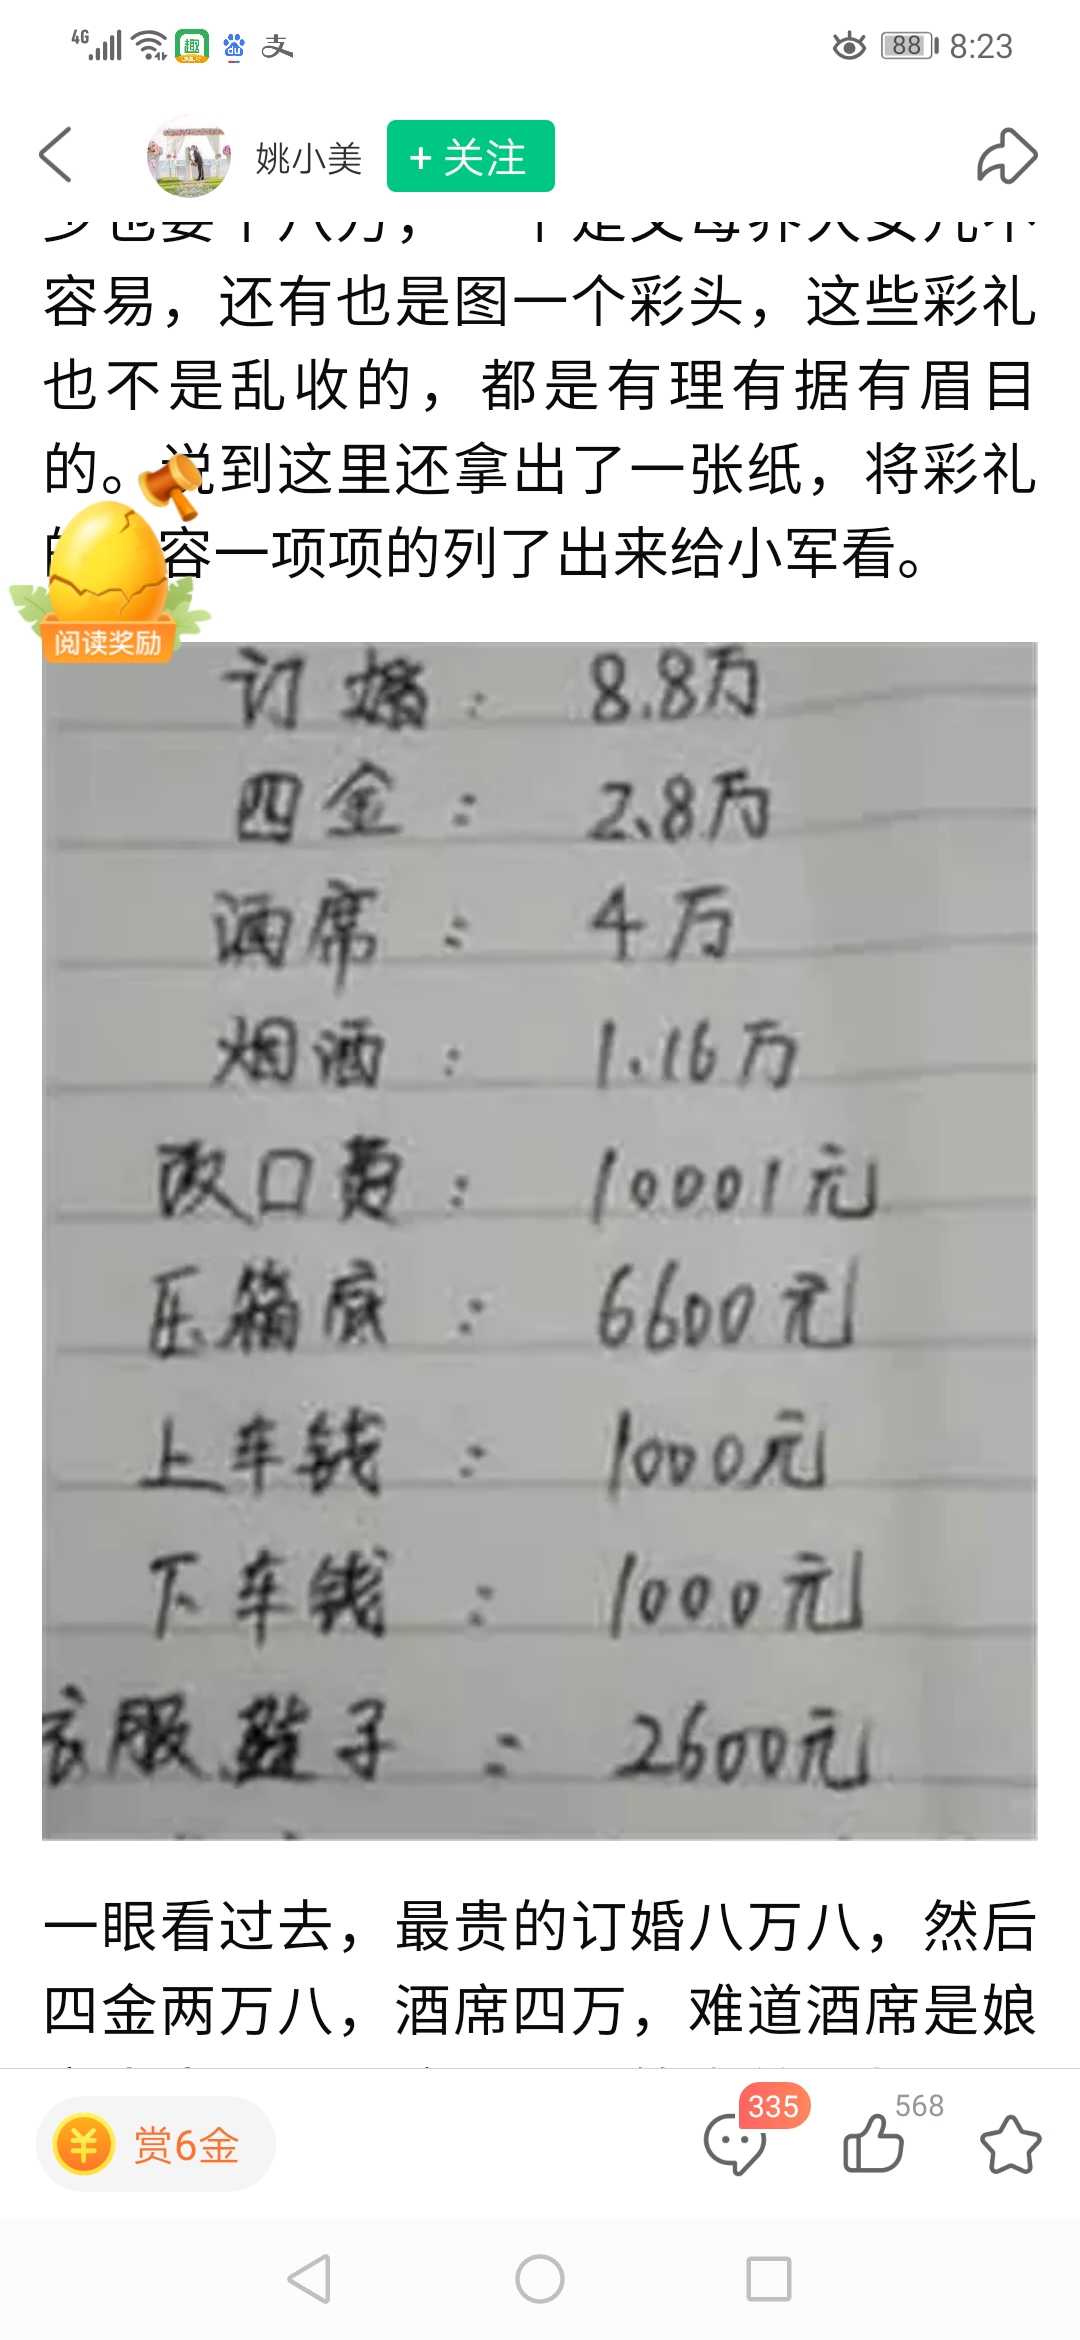 4G 88 8:23
姚小美 + 关注
容易，还有也是图一个彩头，这些彩礼
也不是乱收的，都是有理有据有眉目
的。说到这里还拿出了一张纸，将彩礼
容一项项的列了出来给小军看。
阅读奖励
订婚：8.8万
四金：2.8万
酒席：4万
烟酒：1.16万
改口费：10001元
压箱底：6600元
上车钱：1000元
下车钱：1000元
衣服.鞋子：2600元
一眼看过去，最贵的订婚八万八，然后
四金两万八，酒席四万，难道酒席是娘
赏6金 335 568